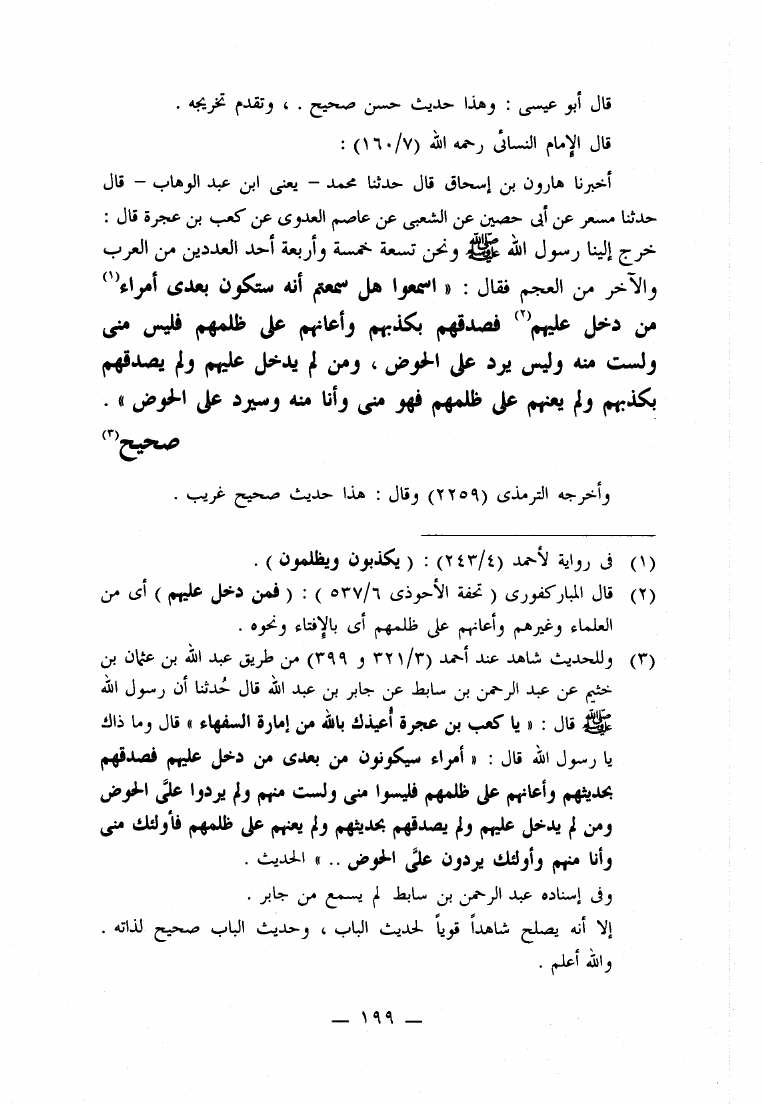 قال أبو عيسى : وهذا حديث حسن صحيح . ، وتقدم تخريجه .
قال الإمام النسائى رحمه الله (١٦٠/٧) :
أخبرنا هارون بن إسحاق قال حدثنا محمد – يعنى ابن عبد الوهاب – قال
حدثنا مسعر عن أبى حصين عن الشعبى عن عاصم العدوى عن كعب بن عجرة قال :
خرج إلينا رسول الله ﷺ ونحن تسعة خمسة وأربعة أحد العددين من العرب
والآخر من العجم فقال : « اسمعوا هل سمعتم أنه ستكون بعدى أمراء(١)
من دخل عليهم(٢) فصدقهم بكذبهم وأعانهم على ظلمهم فليس منى
ولست منه وليس يرد على الحوض ، ومن لم يدخل عليهم ولم يصدقهم
بكذبهم ولم يعنهم على ظلمهم فهو منى وأنا منه وسيرد على الحوض » .
صحيح(٣)
وأخرجه الترمذى (٢٢٥٩) وقال : هذا حديث صحيح غريب .
(١) فى رواية لأحمد (٢٤٣/٤) : ( يكذبون ويظلمون ) .
(٢) قال المباركفورى ( تحفة الأحوذى ٥٣٧/٦ ) : ( فمن دخل عليهم ) أى من
العلماء وغيرهم وأعانهم على ظلمهم أى بالإفتاء ونحوه .
(٣) وللحديث شاهد عند أحمد (٣٢١/٣ و ٣٩٩) من طريق عبد الله بن عثمان بن
خثيم عن عبد الرحمن بن سابط عن جابر بن عبد الله قال حُدثنا أن رسول الله
ﷺ قال : « يا كعب بن عجرة أُعيذك بالله من إمارة السفهاء » قال وما ذاك
يا رسول الله قال : « أمراء سيكونون من بعدى من دخل عليهم فصدقهم
بحديثهم وأعانهم على ظلمهم فليسوا منى ولست منهم ولم يردوا علىَّ الحوض
ومن لم يدخل عليهم ولم يصدقهم بحديثهم ولم يعنهم على ظلمهم فأولئك منى
وأنا منهم وأولئك يردون علىَّ الحوض .. » الحديث .
وفى إسناده عبد الرحمن بن سابط لم يسمع من جابر .
إلا أنه يصلح شاهداً قوياً لحديث الباب ، وحديث الباب صحيح لذاته .
والله أعلم .
— ١٩٩ —